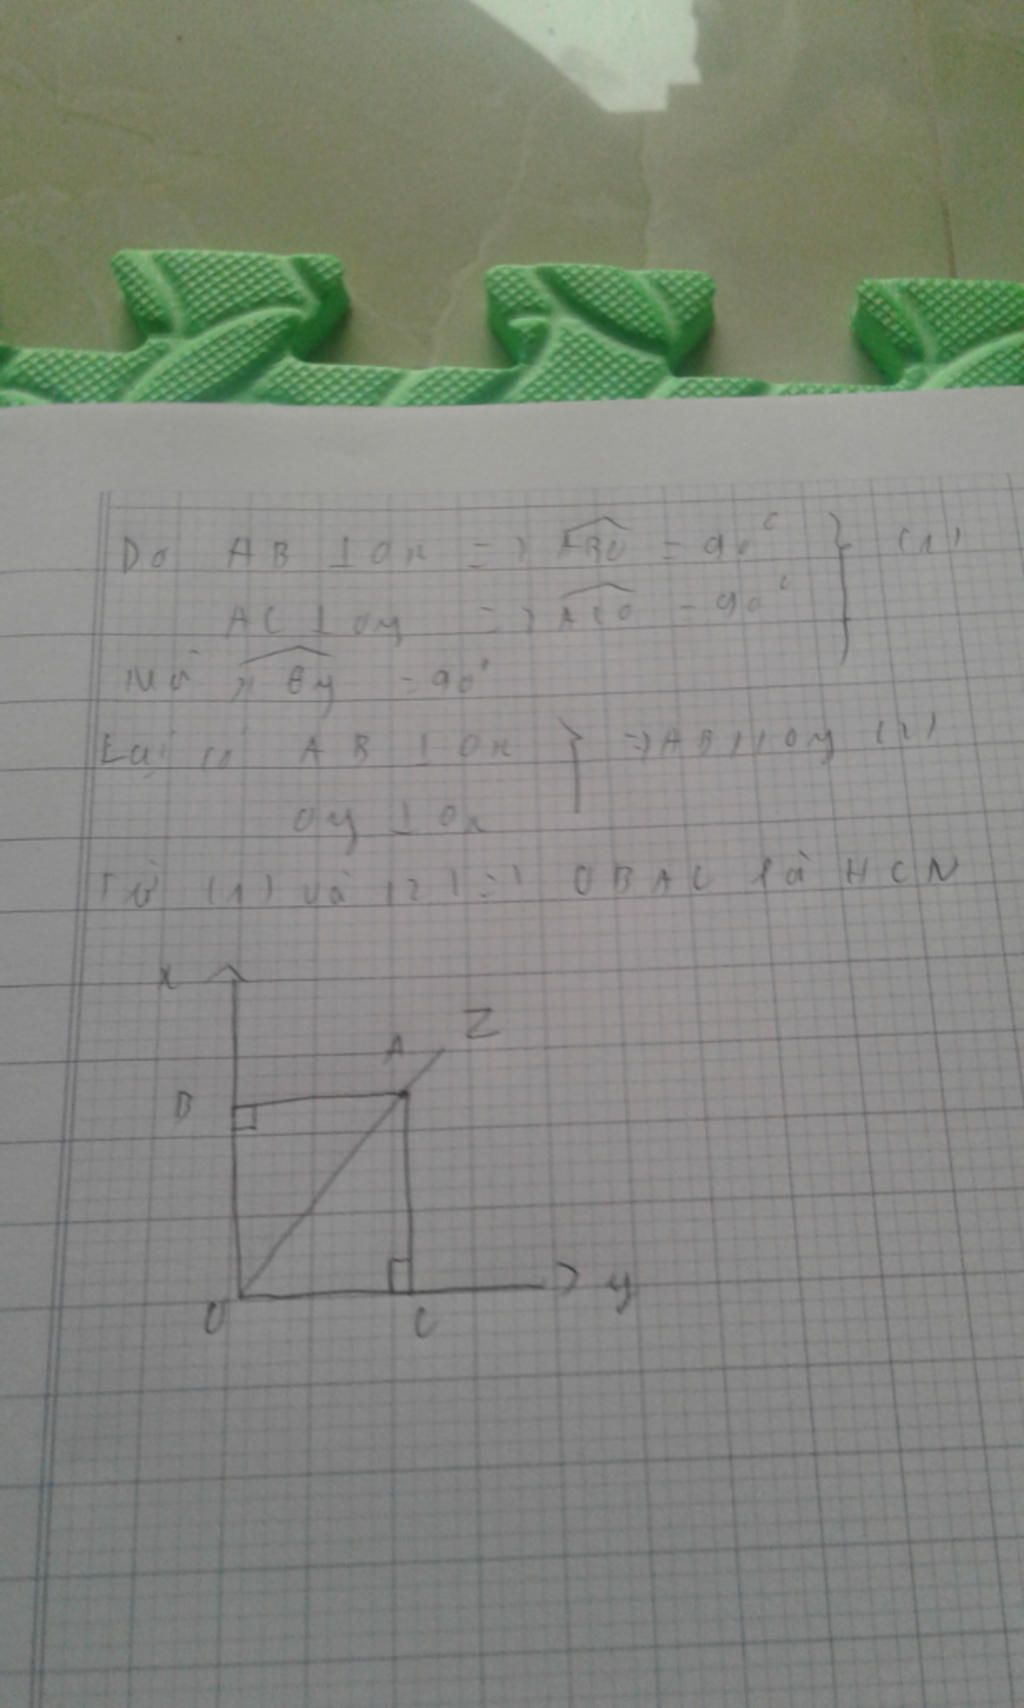 Do AB ⊥ Ox => ABO = 90° } (1)
AC ⊥ Oy => ACO = 90°
Mà xOy = 90°
Lại có AB ⊥ Ox } => AB // Oy (2)
Oy ⊥ Ox
Từ (1) và (2) => OBAC là HCN
x
A z
B
O C y